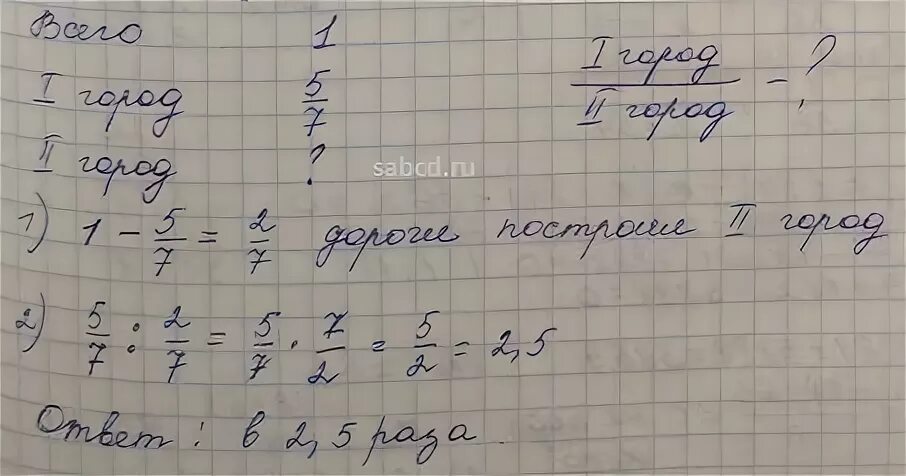 Всего 1
I город 5/7
I город / II город - ?
II город ?
sabcd.ru
1) 1 - 5/7 = 2/7 дороги построил II город
2) 5/7 : 2/7 = 5/7 · 7/2 = 5/2 = 2,5
Ответ : в 2,5 раза.